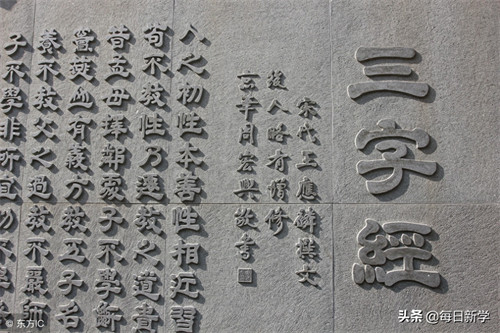 三字經
宋代王應麟撰文
後人略有增修
年月宏興敬書
人之初性本善性相近習
苟不教性乃遷教之道貴
昔孟母擇鄰處子不學斷
竇燕山有義方教五子名
養不教父之過教不嚴師
子不學非所宜幼
©东方IC
头条 @每日新学